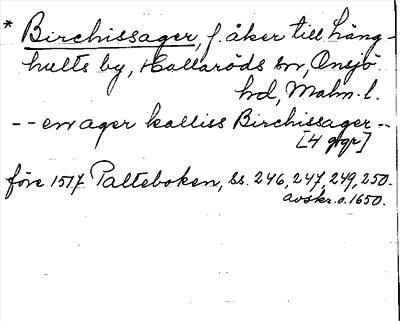 * Birchissager, f. åker till Häng-
hults by, Hallaröds sn, Onsjö
hd, Malm. l.
-- en ager kalliss Birchissager --
[4 ggr]
före 1517. Palteboken, ss. 246, 247, 249, 250.
avskr. o. 1650.